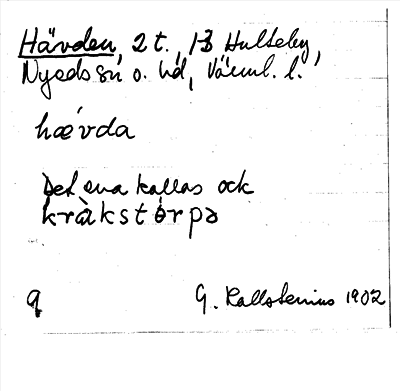 Hävden, 2 t., 1-3 Hulteby,
Nyeds sn o. hd, Värml. l.
hævda
Det ena kallas ock
kråkstòrpə
q
G. Kallstenius 1902